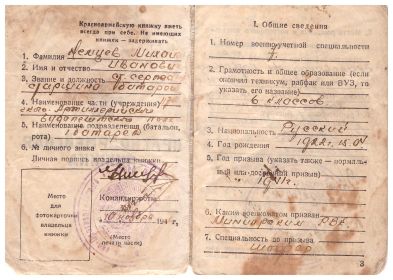 Красноармейскую книжку иметь
всегда при себе. Не имеющих
книжек — задерживать
1. Фамилия Немцев Михаил
2. Имя и отчество Иванович
3. Звание и должность ст. сержант
старшина батареи
4. Наименование части (учреждения)
Артиллерийский
Будапештский полк
5. Наименование подразделения (батальон,
рота) батарея
6. № личного знака
Личная подпись владельца книжки
Место
для
фотокарточки
владельца
книжки
Командир роты
10 ноября 194 г.
(Место
печати части)
I. Общие сведения
1. Номер военно-учетной специальности
7.
2. Грамотность и общее образование (если
окончил техникум, рабфак или ВУЗ, то
указать его название)
6 классов
3. Национальность Русский
4. Год рождения 1922
5. Год призыва (указать также — нормаль-
ный или досрочный призыв)
6. Каким военкоматом призван
РВК
7. Специальность до призыва
Шофер
3